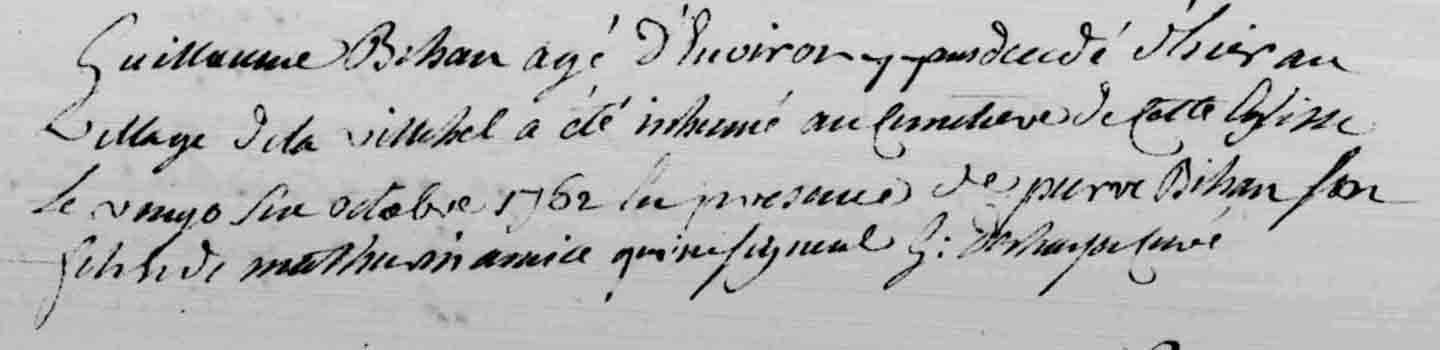 Guillaume Bihan agé d'Environ décedé d'hier au
village de la a été inhumé au Cimetiere de Cette Eglise
le Octobre 1762 En presance de pierre Bihan son
fils de mathurin amice qui ne signent G: Curé